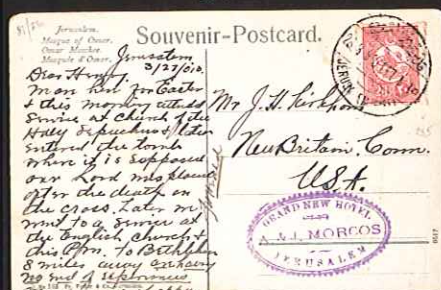 Souvenir-Postcard.
Jerusalem.
Mosque of Omar.
Omar Moschee.
Mosquée d'Omar.
Jerusalem
3/27/010.
Dear Henry,
Man here for Easter
& this morning attended
Service at Church of the
Holy Sepulchre & later
entered the tomb
where it is supposed
our Lord was placed
after the death on
the cross. Later we
went to a service at
the English Church &
this P.m. to Bethlehem
8 miles away
no end of
Mr J. H. Kirkham
New Britain, Conn.
USA.
GRAND NEW HOTEL
A. & J. MORCOS
JERUSALEM